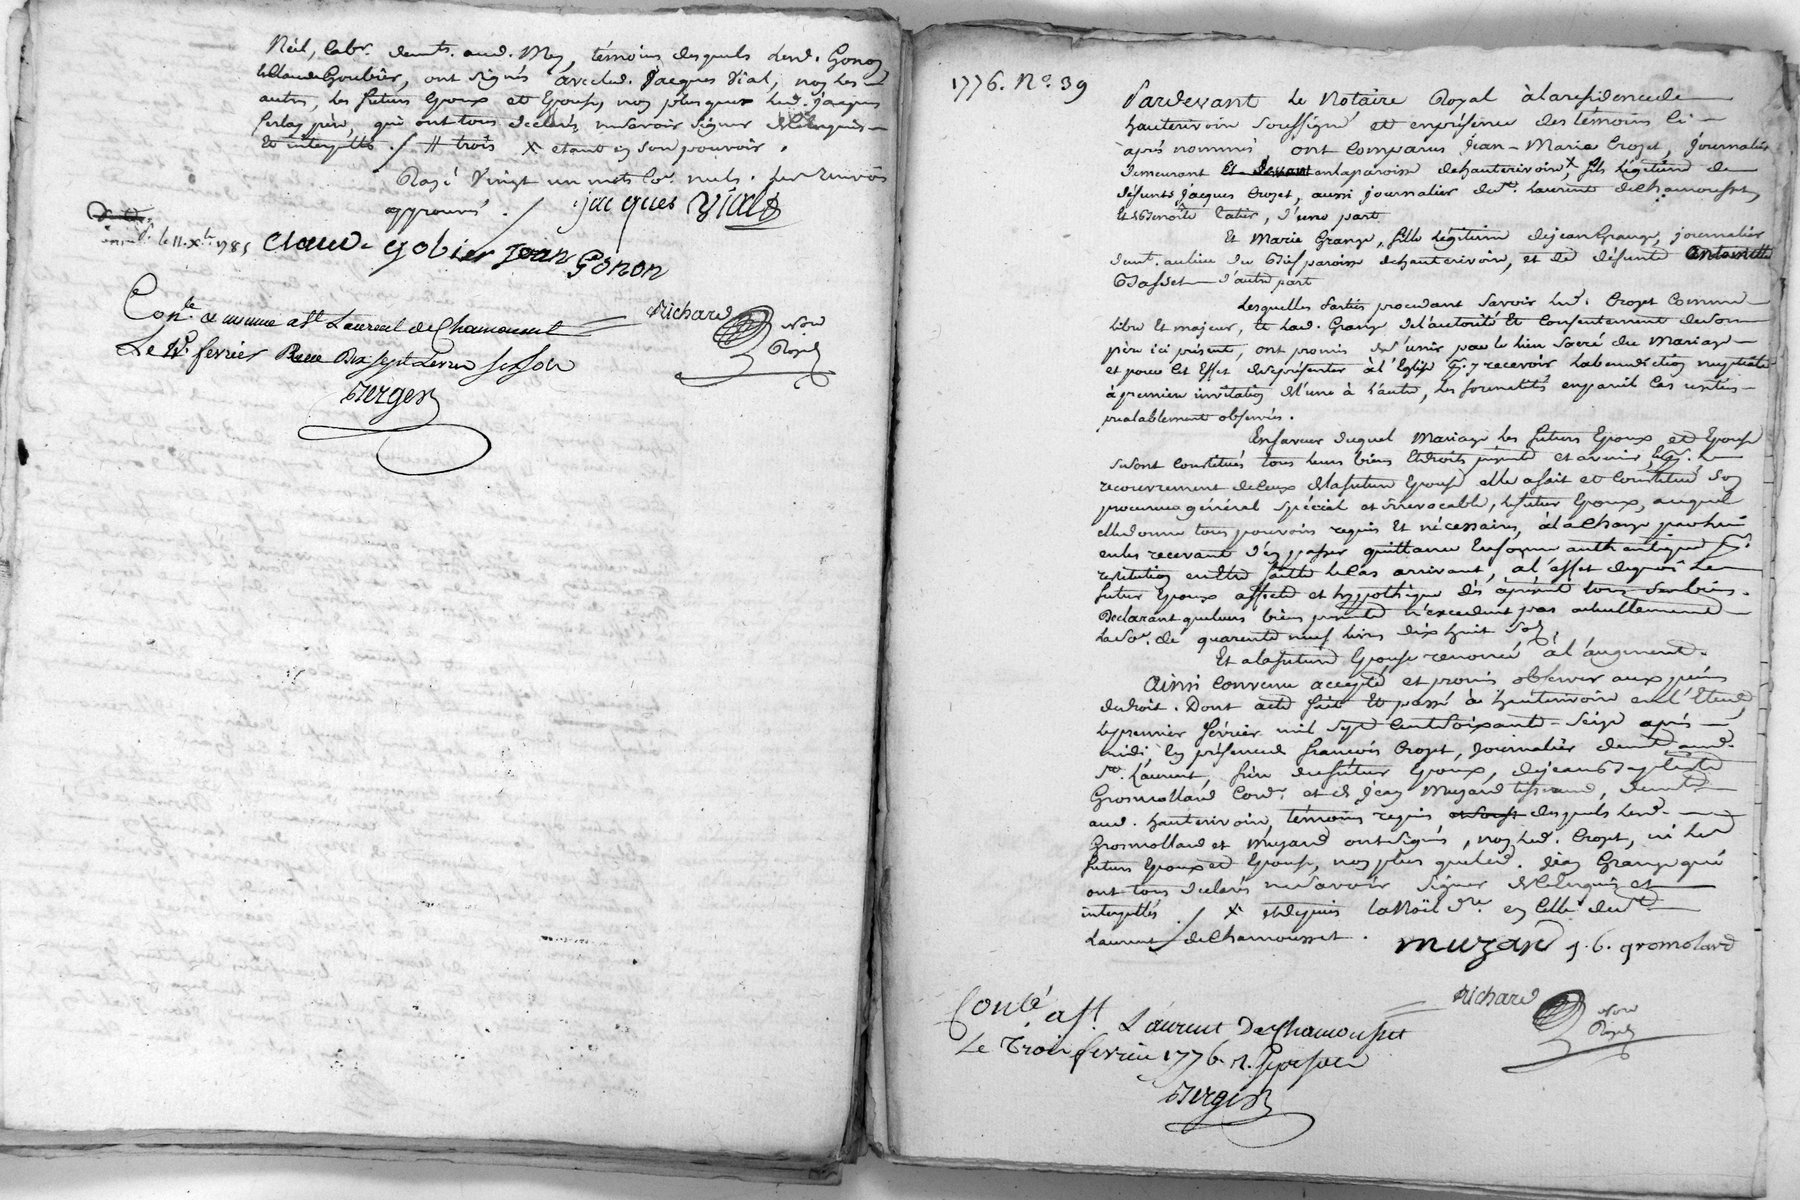 Néel, labr. demt. aud. Mey, témoins desquels led. Gonon
& Claude Goubier, ont signés avec led. Jacques Vial, non les
autres, les futurs Epoux et Epouse, non plus que led. Jacques
père, qui ont tous declarés ne savoir signer de ce enquis
et interpellés ./ # trois X etant en son pouvoir.
Rayé vingt un mots nuls. renvois
approuvés. jacques Vial
le 11. Xbre 1785 Claude gobier Jean
Gonon
Conlé. à St Laurent de Chamousset Richard Nore
Le fevrier Reçu Dix sept Livres six sols Royal
Verger
1776. N°. 39
Pardevant le Notaire Royal à la residence de
hauterivoire soussigné et en présence des témoins ci-
après nommés ont comparus Jean-Marie Crozet, journalier
demeurant en la paroisse de hauterivoire X, fils légitime de
défunts Jacques Crozet, aussi journalier de St. Laurent de Chamousset,
et Benoîte, d'une part
Et Marie Grange, fille légitime de jean Grange, journalier
demt. au lieu du paroisse de hauterivoire, et de défunte Antoinette
Basset d'autre part
Lesquelles parties procedant savoir led. Crozet comme
libre et majeur, & lad. Grange de l'autorité et consentement de son
père ici présent, ont promis de s'unir par le lien sacré du Mariage
et pour cet effet de se présenter à l'Eglise pr. y recevoir la benediction nuptiale
à premiere invitation de l'une à l'autre, les formalités en pareil cas usitées
préalablement observées.
En faveur duquel Mariage les futurs Epoux et Epouse
se sont constitués tous leurs biens et droits présents et avenir,
recouvrement de ceux de la future Epouse elle a fait et constitué son
procureur général spécial et irrévocable, le futur Epoux, auquel
elle donne tous pouvoirs requis et nécessaires, à la charge par lui
en les recevant d'en passer quittance en forme authentique pr.
restitution en être faitte le cas arrivant, à l'effet de quoi le
futur Epoux affecte et hypothèque dès à présent tous ses biens.
Declarant que leurs biens présents n'excedent pas actuellement
la so. de quarente neuf livres dix huit sols.
Et a la future Epouse renoncé à l'augment.
Ainsi convenu accepté et promis observer aux peines
de droit. Dont acte fait et passé à hauterivoire en l'Etude,
le premier fevrier mil sept cent soixante-seize après
midi, en présence de françois Crozet, journalier demt. aud.
St. Laurent, frère du futur Epoux, de jean Baptiste
Grosmollard Cord. et de jean Muzard tisserand, demts.
aud. hauterivoire, témoins requis desquels lesd.
Grosmollard et Muzard ont signés, non led. Crozet, ni lesd
futurs Epoux et Epouse, non plus que led. jean Grange qui
ont tous declarés ne savoir signer de ce enquis et
interpellés ./ X et depuis la Noël dre. en celle de St.
Laurent de Chamousset. muzard j. b. gromolard
Conlé à St. Laurent De Chamousset Richard Nore
Le Trois fevrier 1776. Royal
Verger